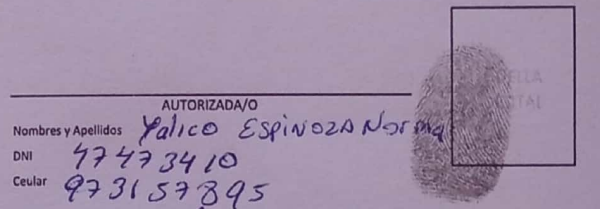 HUELLA
DIGITAL
AUTORIZADA/O
Nombres y Apellidos Yalico ESPINOZA Norma
DNI 47473410
Ceular 973157895